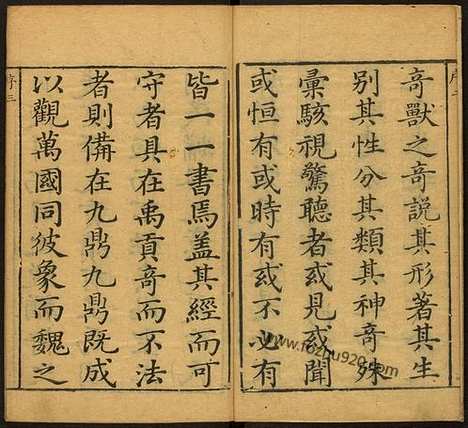 奇獸之奇說其形著其生
別其性分其類其神奇殊
彙駭視驚聽者或見或聞
或恒有或時有或不必有
皆一一書焉蓋其經而可
守者具在禹貢奇而不法
者則備在九鼎九鼎既成
以觀萬國同彼象而魏之
序三
www.fozhu920.com